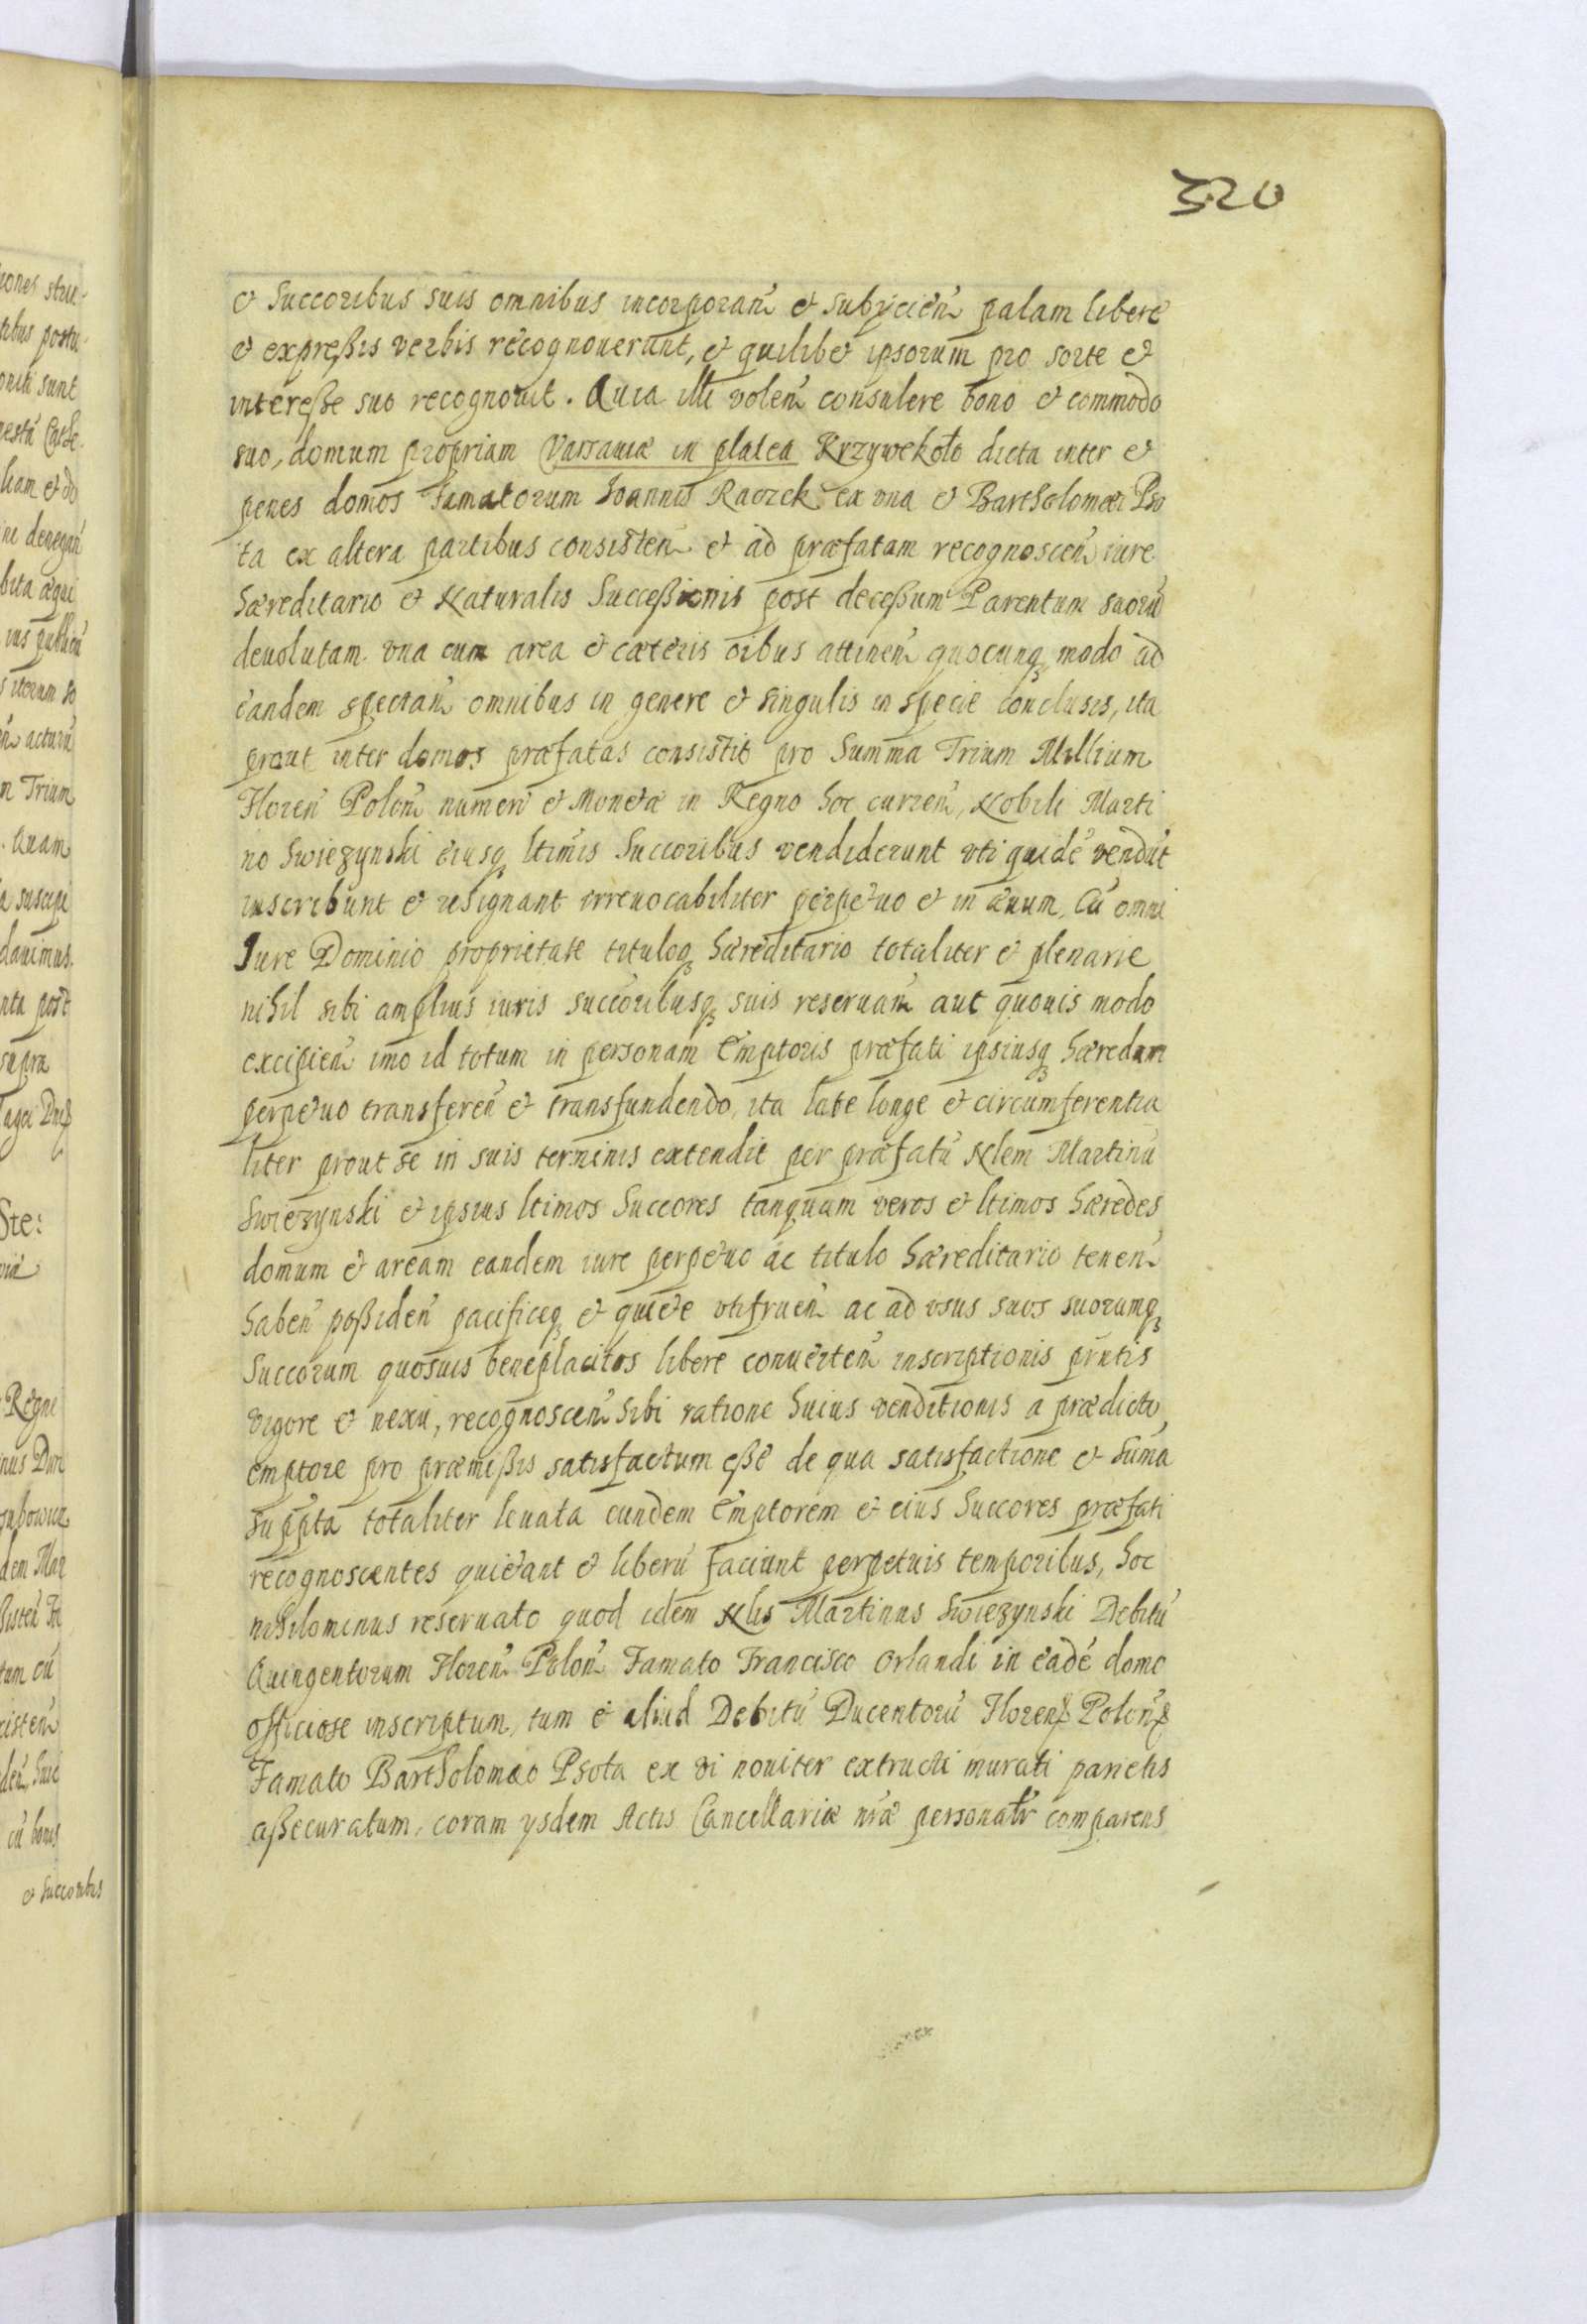 320
& Succoribus suis omnibus incorporan̄ & subÿcien̄ palam libere
& expreßis verbis recognouerunt, & quilibet ipsorum pro sorte &
intereße suo recognouit. Quia illi volen̄ consulere bono & commodo
suo, domum propriam Varsauiæ in platea Krzywekoło dicta inter &
penes domos Famatorum Ioannis Raczek ex una & Bartholomæi Pso
ta ex altera partibus consisten̄ & ad præfatam recognoscen̄ iure
hæreditario & Naturalis Succeßionis post deceßum Parentum suorū
deuolutam una cum area & cæteris oībus attinen̄ quocunq3 modo ad
eandem spectan̄ omnibus in genere & singulis in specie conclusis, ita
prout inter domos præfatas consistit pro Summa Trium Millium
Floren̄ Polon̄ numeri & Monetæ in Regno hoc curren̄, Nobili Marti
no Swiezynski eiusq3 ltimis Succoribus vendiderunt vti quidē vendūt
inscribunt & resignant irreuocabiliter perpetuo & in æuum, Cū omni
Iure Dominio proprietate tituloq3 hæreditario totaliter & plenarie
nihil sibi amplius iuris succoribusq3 suis reseruan̄ aut quouis modo
excipien̄ imo id totum in personam Emptoris præfati ipsiusq3 hæredum
perpetuo transferen̄ & transfundendo, ita late longe & circumferentia
liter prout se in suis terminis extendit per præfatū Nlem Martinū
Swiezynski & ipsius ltimos Succores tanquam veros & ltimos hæredes
domum & aream eandem iure perpetuo ac titulo hæreditario tenen̄
haben̄ poßiden̄ pacificeq3 & quiete vtifruen̄ ac ad vsus suos suorumq3
Succorum quosuis beneplacitos libere conuerten̄ inscriptionis pn̄tis
vigore & nexu, recognoscen̄ sibi ratione huius venditionis a prædicto
emptore pro præmißis satisfactum eße de qua satisfactione & Sūma
suppta totaliter leuata eundem Emptorem & eius Succores præfati
recognoscentes quietant & liberū faciunt perpetuis temporibus, hoc
nihilominus reseruato quod idem Nlis Martinus Swiezynski Debitū
Quingentorum Floren̄ Polon̄ Famato Francisco Orlandi in eadē domo
officiose inscriptum, tum & aliud Debitū Ducentorū Floren̄ Polon̄
Famato Bartholomæo Psota ex vi nouiter extructi murati parietis
aßecuratum, coram ÿsdem Actis Cancellariæ nr̄æ personatr comparens